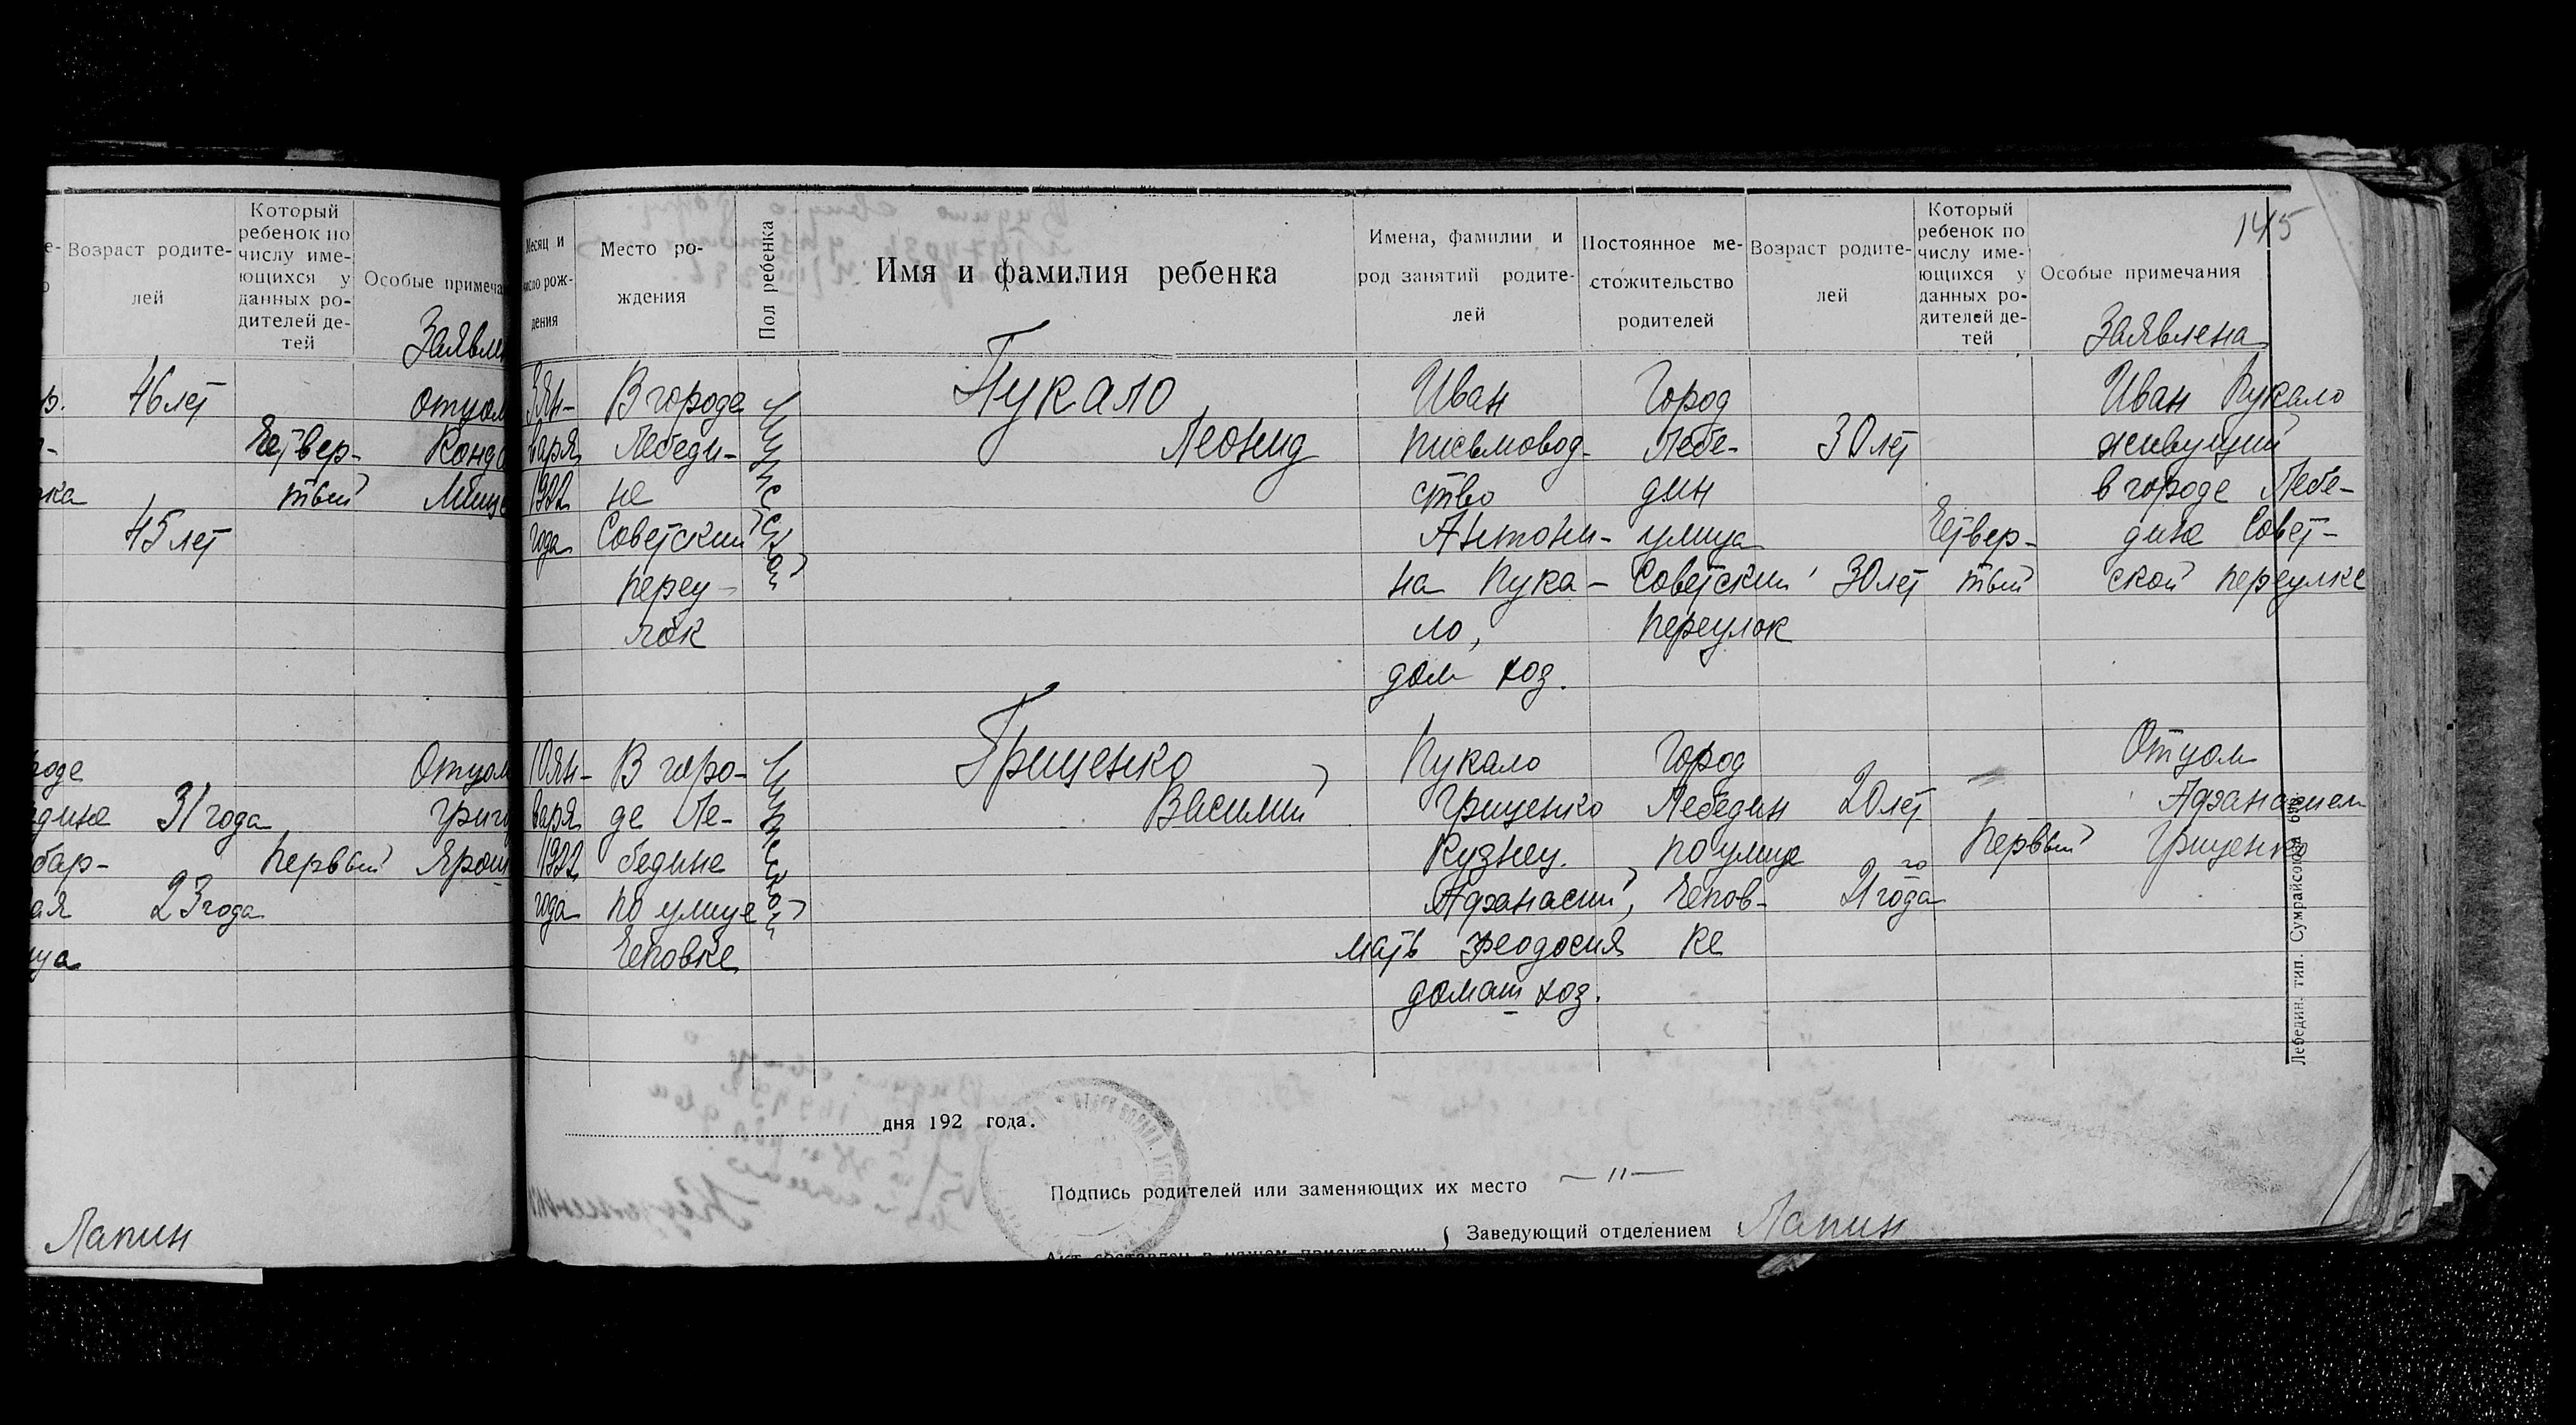 Возраст родите-
лей
Который
ребенок по
числу име-
ющихся у
данных ро-
дителей де-
тей
Особые примеча
Заявлен
46 лет
отцом
Четвер-
Конд
тый
45 лет
Отцом
роде
дине
31 года
Григо
бар-
первый
Ярош
ая
23 года
ица
Лапин
145
Месяц и
число рож-
дения
Место ро-
ждения
Пол ребенка
Имя и фамилия ребенка
Имена, фамилии и
род занятий родите-
лей
Постоянное ме-
стожительство
родителей
Возраст родите-
лей
Который
ребенок по
числу име-
ющихся у
данных ро-
дителей де-
тей
Особые примечания
Заявлена
3 Ян-
варя
1922
года
В городе
Лебеди-
не
Советский
переу-
лок
Мужской
Пукало
Леонид
Иван
письмовод-
ство
Антони-
на Пука-
ло,
дом хоз.
Город
Лебе-
дин
улица
Советский
переулок
30 лет
30 лет
Четвер-
тый
Иван Пукало
живущий
в городе Лебе-
дине Совет-
ской переулке
10 Ян-
варя
1922
года
В горо-
де Ле-
бедине
по улице
Чеповке
Мужской
Грищенко
Василий
Пукало
Грищенко
Кузнец.
Афанасий,
мать Феодосия
домаш хоз.
Город
Лебедин
по улице
Чепов-
ке
20 лет
21 года
первый
Отцом
Афанасием
Грищенко
Лебедин. тип. Сумрайсоюза
дня 192 года.
Подпись родителей или заменяющих их место —〃—
Заведующий отделением Лапин
Акт составлен в нашем присутствии